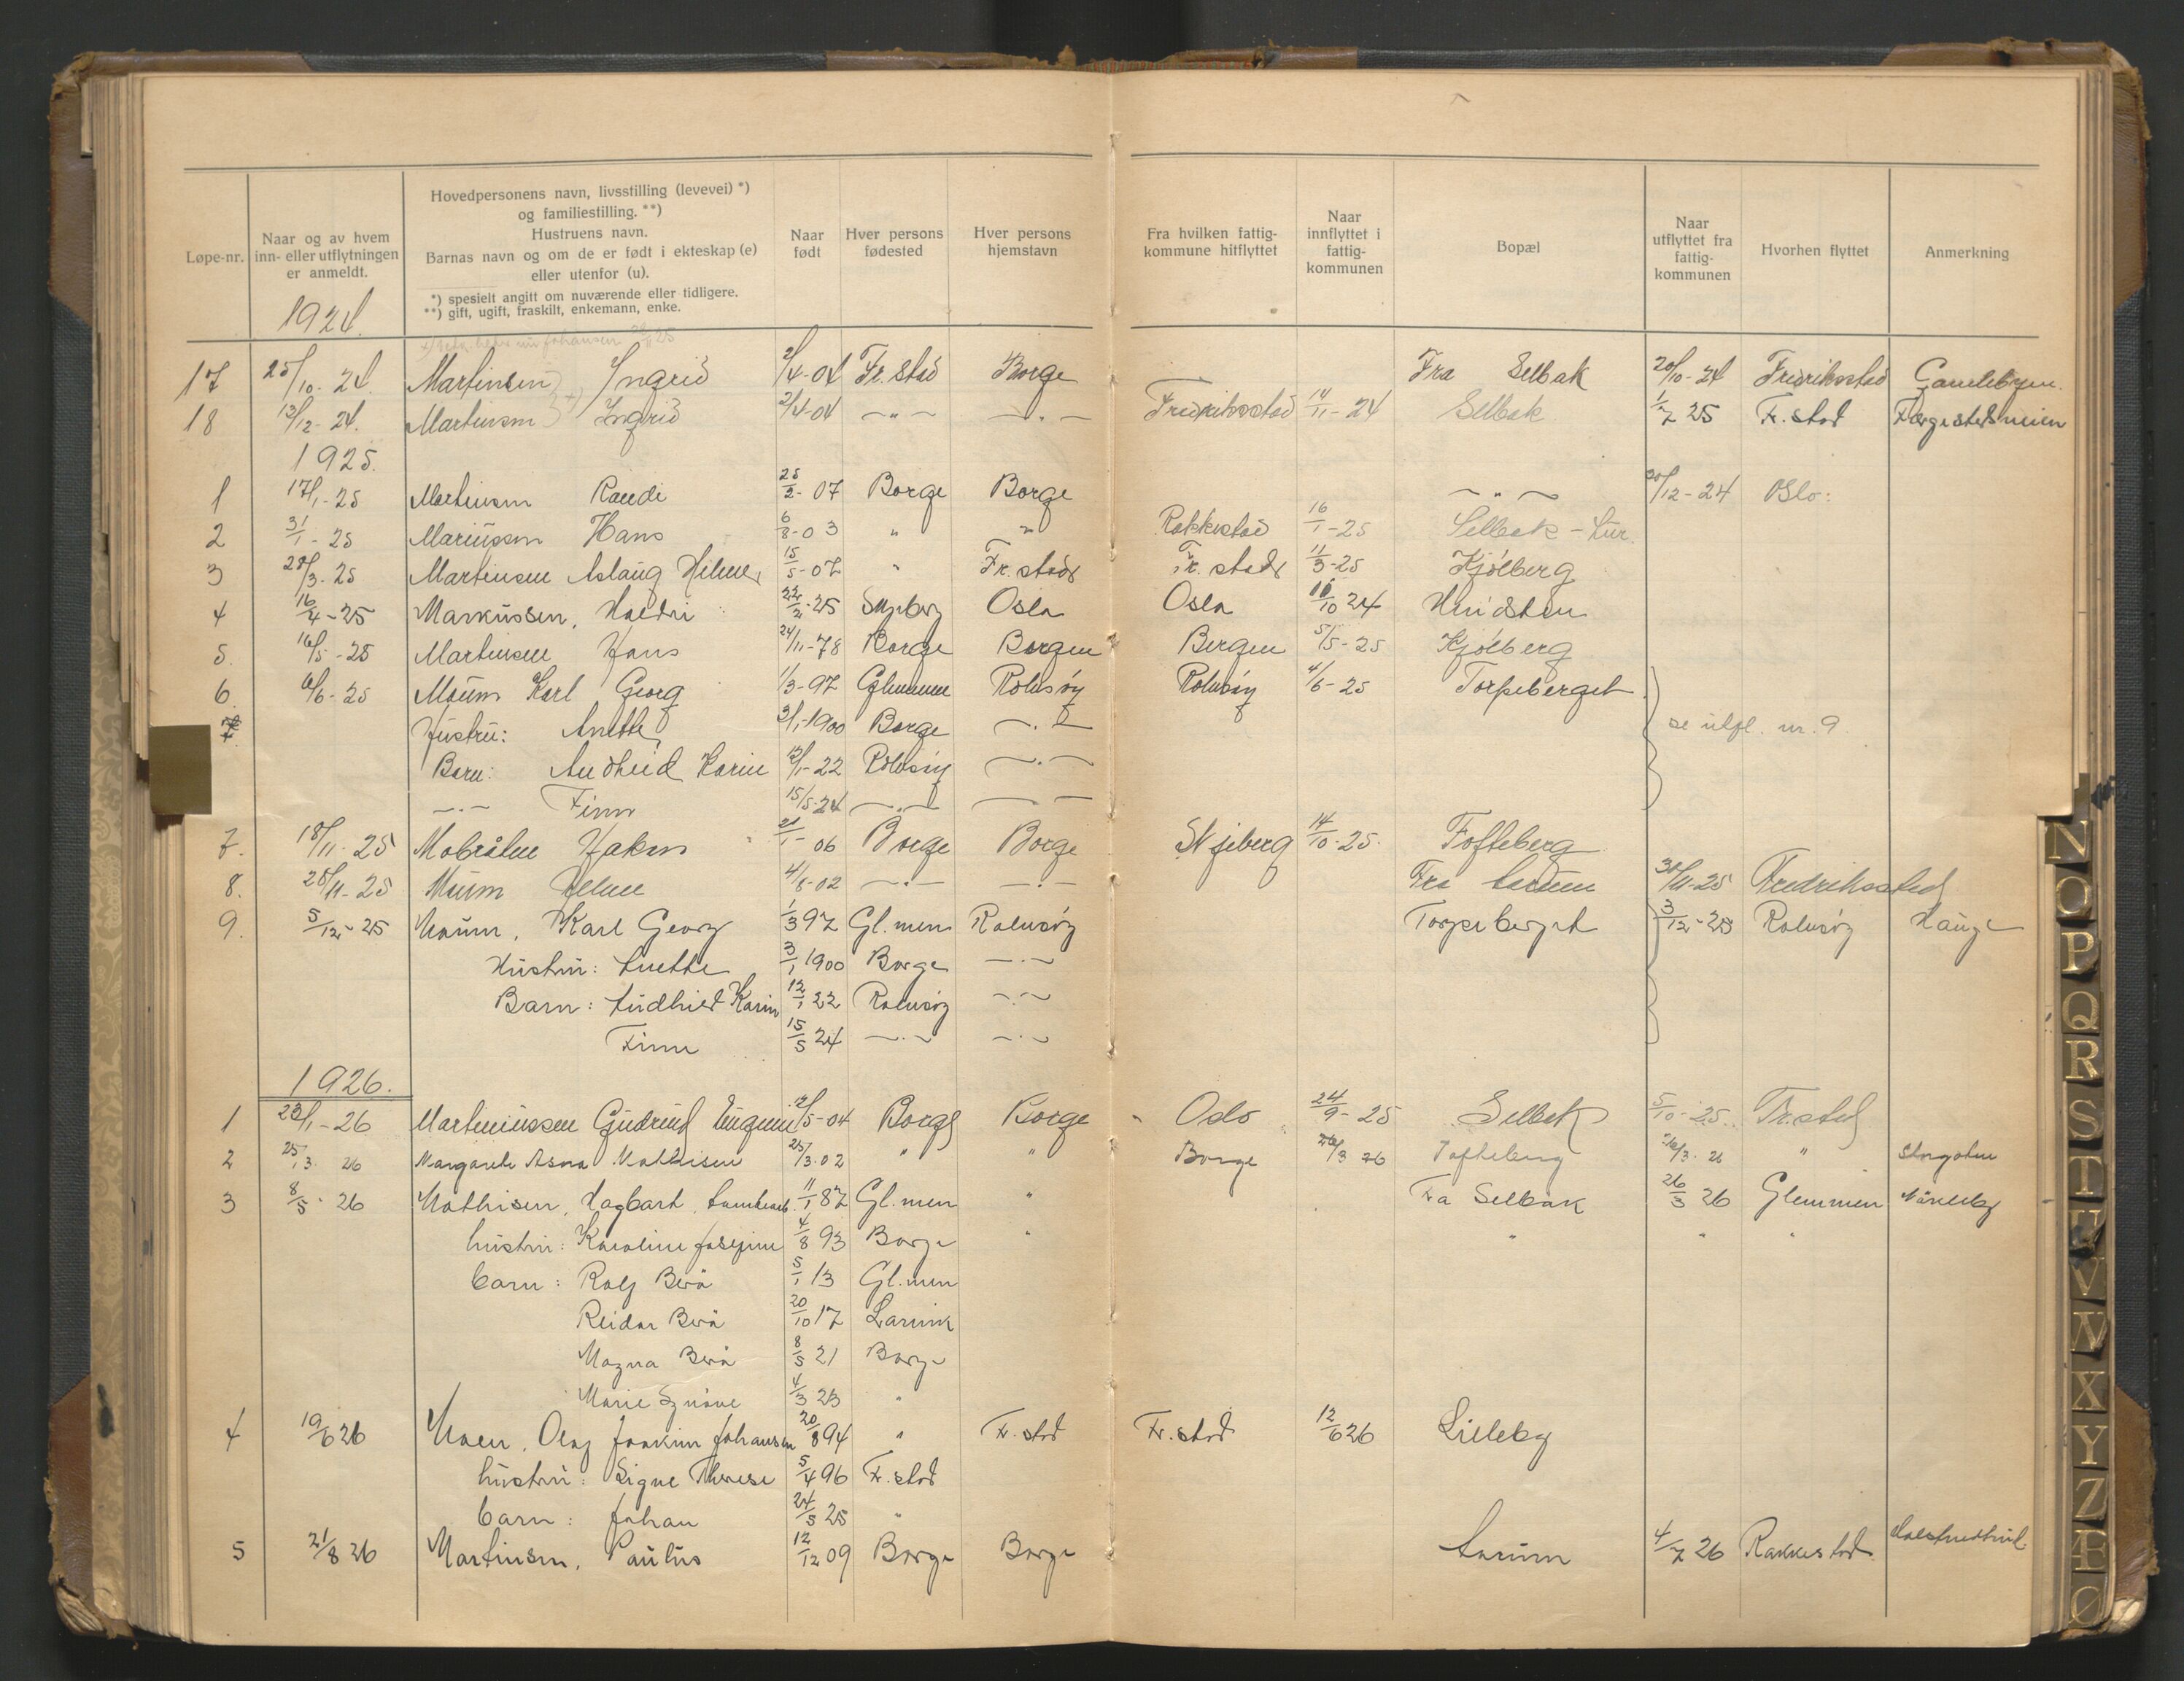 Løpe-nr. | Naar og av hvem inn- eller utflytningen er anmeldt. | Hovedpersonens navn, livsstilling (levevei) *) og familiestilling. **) Hustruens navn. Barnas navn og om de er født i ekteskap (e) eller utenfor (u). *) spesielt angitt om nuværende eller tidligere. **) gift, ugift, fraskilt, enkemann, enke. | Naar født | Hver persons fødested | Hver persons hjemstavn | Fra hvilken fattig-kommune hitflyttet | Naar innflyttet i fattig-kommunen | Bopæl | Naar utflyttet fra fattig-kommunen | Hvorhen flyttet | Anmerkning
1924.
17 25/10-24. Martinsen Ingrid 2/4-04 Fr.stad Borge Fra Selbak 20/10-24 Fredriksstad Gamlebyen.
18 13/12-24. Martinsen Ingrid 2/4-04 —"— —"— Fredriksstad 14/11-24 Selbak 1/7 25 Fr.stad Færgestedsveien
1925.
1 17/1-25 Martinsen Randi 25/2-07 Borge Borge —"— 20/12-24 Oslo:
2 31/1-25 Mariussen Hans 6/8-03 " " Rakkestad 16/1-25 Selbak -
3 28/3-25 Martinsen Aslaug Helene 15/5-07 " Fr.stad Fr.stad 11/3-25 Kjølberg
4 16/4-25 Markussen, 22/2-25 Skjeberg Oslo Oslo 10/10 24 Hvidsten
5. 16/5-25 Martinsen Hans 24/11-78 Borge Bergen Bergen 5/5-25 Kjølberg
6. 6/6-25 Moum Karl Georg 1/3-97 Glemmen Rolvsøy Rolvsøy 4/6-25 Torpeberget
7. Hustru: Anette 3/1-1900 Borge —"— se utfl. nr. 9
Barn: Audheid Karin 12/1-22 Rolvsøy —"—
—"— Finn 15/5-24 —"— —"—
7. 18/11-25 Mobråten Hakon 21/1-06 Borge Borge Skjeberg 14/10-25. Tofteberg
8. 28/11-25 Moum Helene 4/6-02 —"— —"— Fra Aarum 30/11-25 Fredriksstad
9. 5/12-25 Moum, Karl Georg 1/3 97 Gl.men Rolvsøy Torpeberget 3/12-25 Rolvsøy Hauge
Hustru: Anette 3/1 1900 Borge —"—
Barn: Audhild Karin 12/1 22 Rolvsøy —"—
Finn 15/5 24 —"— —"—
1926.
1 23/1-26 Martiniussen Gudrund Eugenie 2/5-04 Borge Borge Oslo 24/9-25 Selbak 5/10-25. Fr.stad
2 25/3 26 Margarete Asora Mathisen 25/3-02 " " Borge 26/3 26 Tofteberg 26/3-26 "
3 8/5-26 Mathisen, Hagbart 11/1 87 Gl.men " Fra Selbak 26/3 26 Glemmen Nableby
hustru: Karoline Josefine 4/8 93 Borge " " " "
barn: Rolf Berä 5/1 13 Gl.men
Reidar Berä 20/10 17 Larvik
Magna Berä 8/5 21 Borge
Marie Synøve 4/3 23 "
4 19/6 26 Moen, Olaf Joakim Johansen 20/8 94 " Fr.stad Fr.stad 12/6 26 Lilleby
hustru: Signe Therese 5/4 96 Fr.stad
barn: Johan 24/5 25 "
5 21/8 26 Martinsen, Paulus 12/12 09 Borge Borge Aarum 4/7 26 Rakkestad
N
O
P
Q
R
S
T
U
V
W
X
Y
Z
Æ
Ø